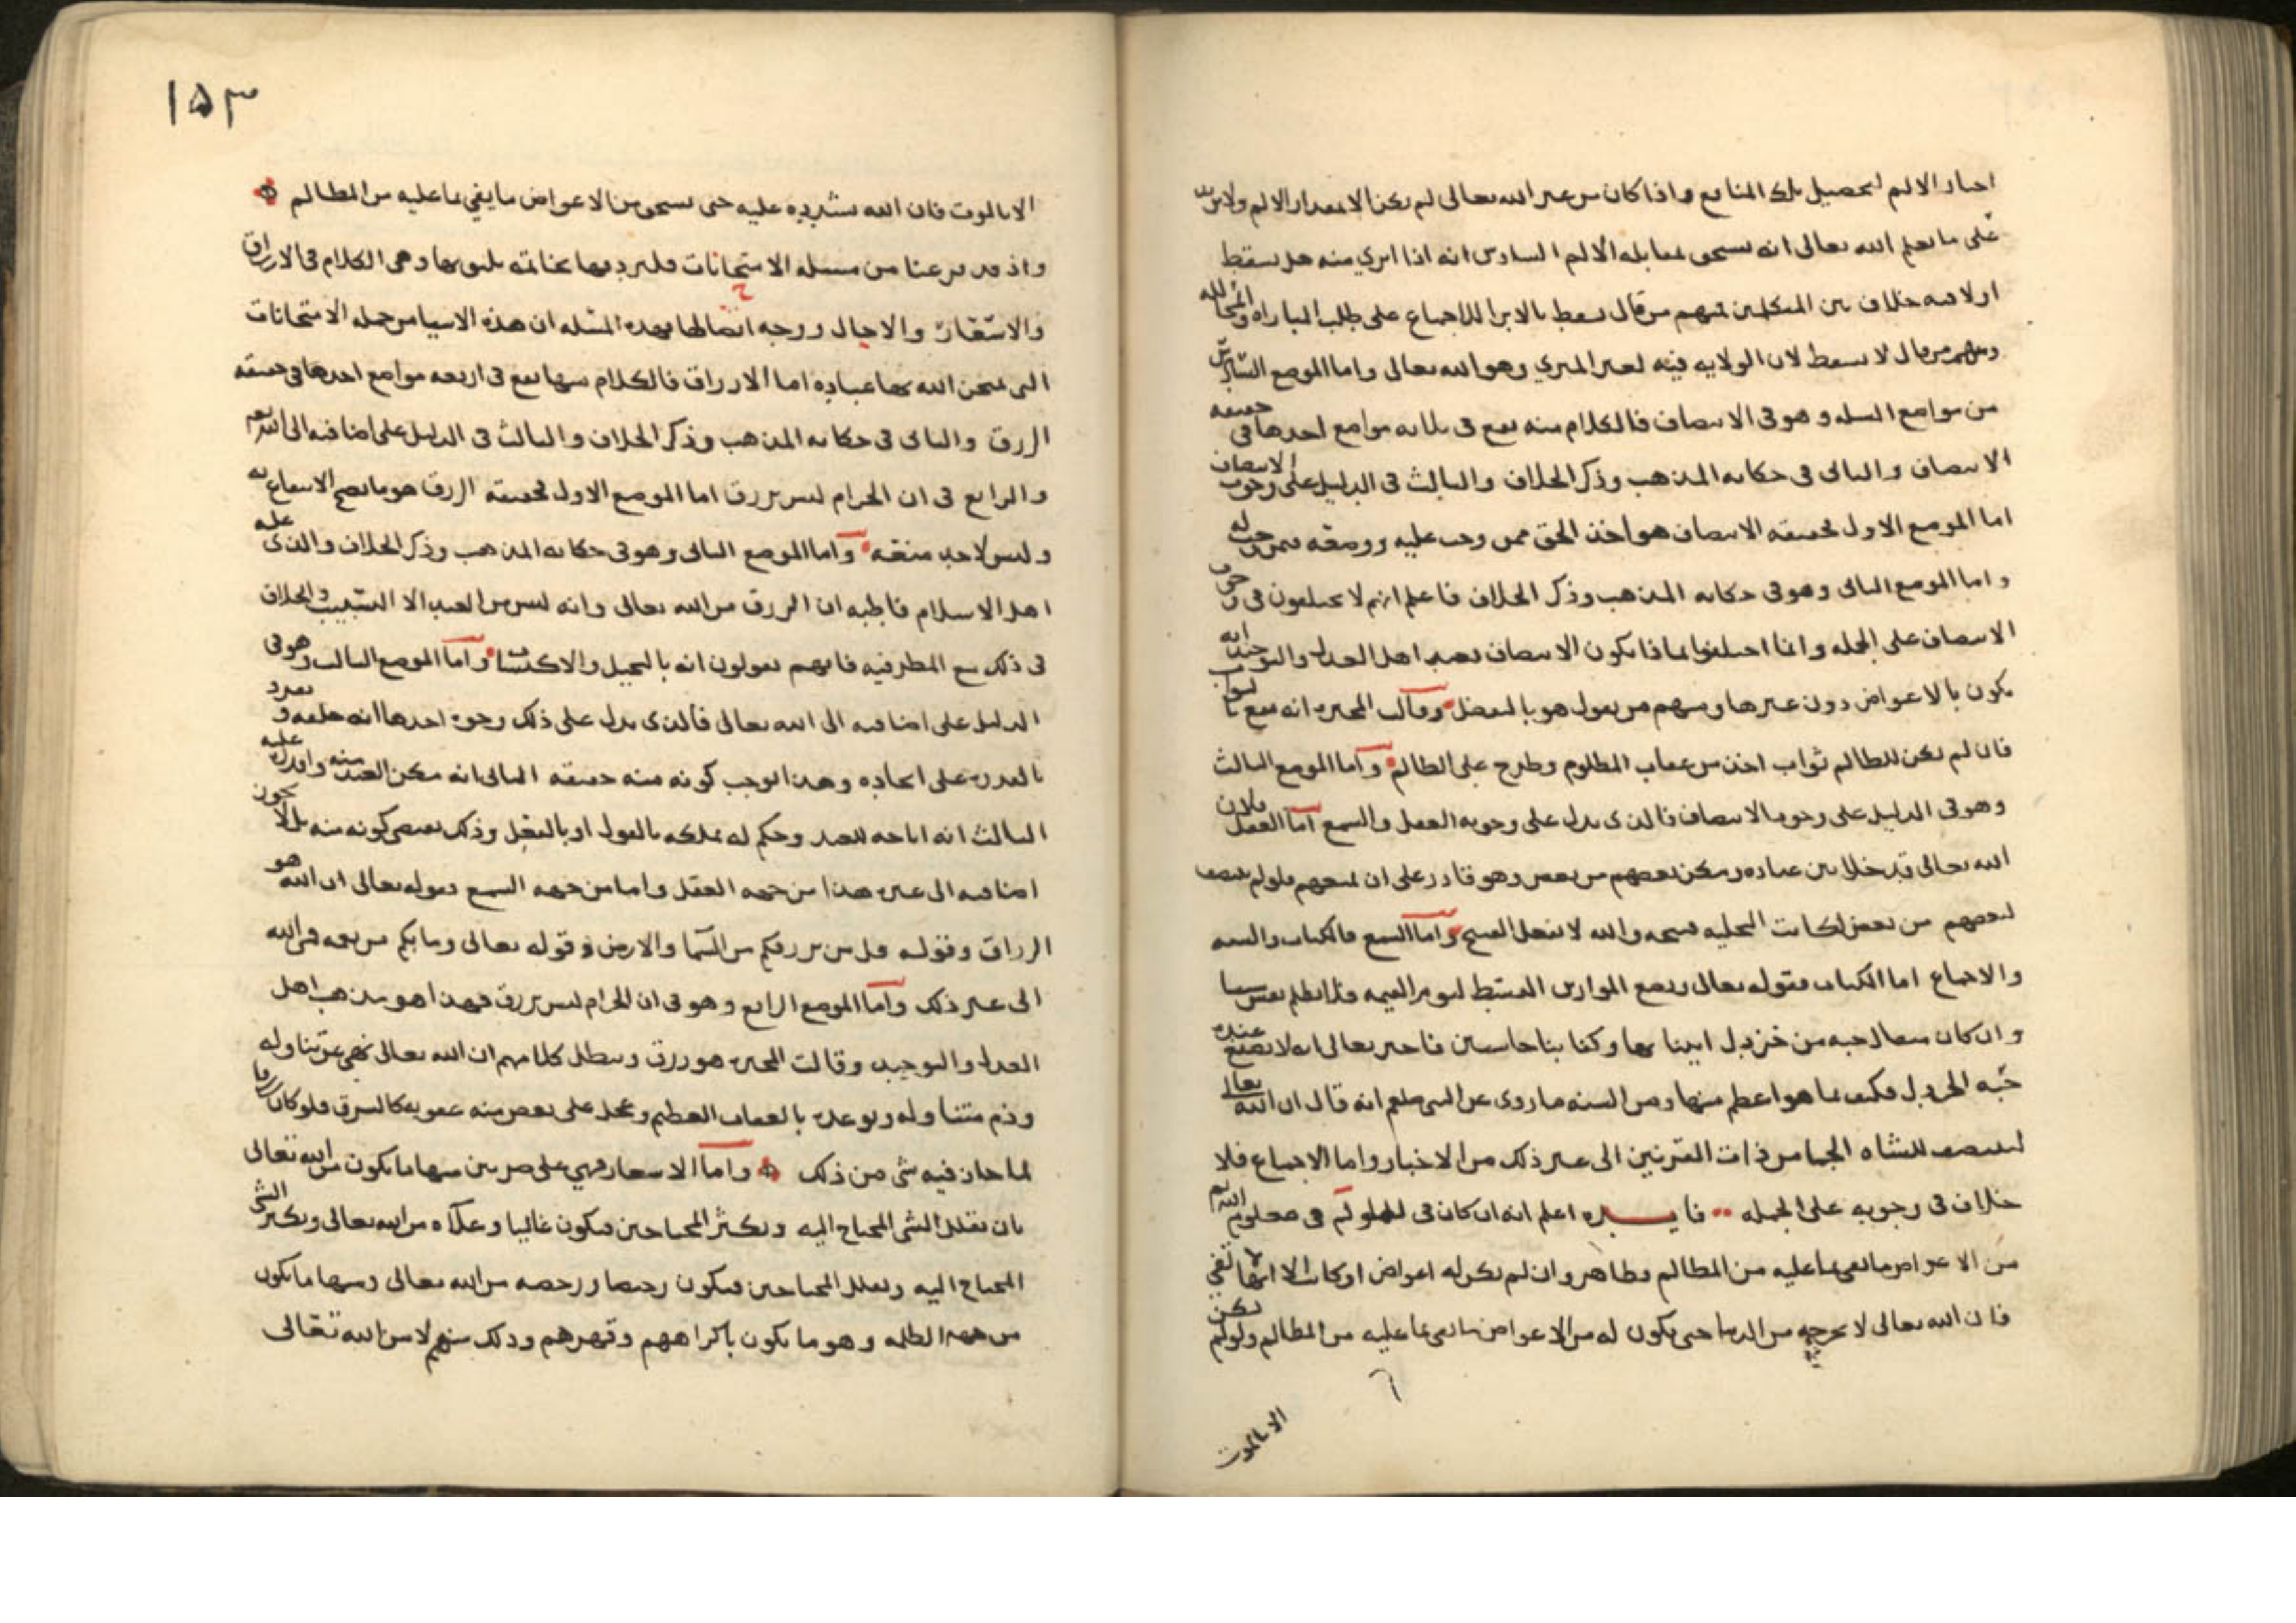 اختيار الالم لتحصيل تلك المنافع واذا كان من غير الله تعالى لم يكن الا بمقدار الالم ولا يزيد
على ما يعلم الله تعالى انه يستحق بمقابله الالم السادس انه اذا ابري منه هل يسقط
اولا فيه خلاف بين المتكلمين فمنهم من قال يسقط بالابرا للاجماع على طلب المباراه والمحاللة
ومنهم من قال لا يسقط لان الولايه فيه لغير المبري وهو الله تعالى واما الموضع
من مواضع المسله وهو في الانتصاف فالكلام منه يقع في ثلاثه مواضع احدها في حقيقه
الانتصاف والثاني في حكايه المذهب وذكر الخلاف والثالث في الدليل على وجوب الانتصاف
اما الموضع الاول فحقيقه الانتصاف هو اخذ الحق ممن وجب عليه ووضعه فيمن وجب له
واما الموضع الثاني وهو في حكايه المذهب وذكر الخلاف فاعلم انهم لا يختلفون في وجوب
الانتصاف على الجمله وانما اختلفوا بماذا يكون الانتصاف فعند اهل العدل والتوحيد انه
يكون بالاعواض دون غيرها ومنهم من يقول هو بالتفضل وقالت المجبره انه يقع بالثواب
فان لم يكن للظالم ثواب اخذ من عقاب المظلوم وطرح على الظالم واما الموضع الثالث
وهو في الدليل على وجوب الانتصاف فالذي يدل على وجوبه العقل والسمع اما العقل فلان
الله تعالى قد خلا بين عباده ومكن بعضهم من بعض وهو قادر على ان يمنعهم فلو لم ينتصف
لبعضهم من بعض لكانت التخليه قبيحه والله لا يفعل القبيح واما السمع فالكتاب والسنه
والاجماع اما الكتاب فقوله تعالى ونضع الموازين القسط ليوم القيمه فلا تظلم نفس شيئا
وان كان مثقال حبه من خردل اتينا بها وكفا بنا حاسبين فاخبر تعالى انه لا يضيع عنده
حبه الخردل فكيف بما هو اعظم منها ومن السنه ما روي عن النبي صلعم انه قال ان الله تعالى
لينتصف للشاه الجما من ذات القرنين الى غير ذلك من الاخبار واما الاجماع فلا
خلاف في وجوبه على الجمله فايده اعلم انه ان كان في للظالم في معلوم الله
من الاعواض ما يفي بما عليه من المظالم فظاهر وان لم يكن له اعواض او كانت الا انها لا تفي
فان الله تعالى لا يخرجه من الدنيا حتى يكون له من الاعواض ما يفي بما عليه من المظالم ولو لم يكن
الا بالموت
١٥٣
الا بالموت فان الله يشدده عليه حتى يستحق من الاعواض ما يفي بما عليه من المظالم
واذ قد فرغنا من مسله الامتحانات فلنردفها بخاتمه يليق بها وهي الكلام في الارزاق
والاسعار والاجال ووجه اتصالها بهذه المسله ان هذه الاشيا من جمله الامتحانات
التي يمتحن الله بها عباده اما الارزاق فالكلام منها يقع في اربعه مواضع احدها في حقيقه
الرزق والثاني في حكايه المذهب وذكر الخلاف والثالث في الدليل على اضافته الى الله تعالى
والرابع في ان الحرام ليس برزق اما الموضع الاول فحقيقه الرزق هو ما يصح الانتفاع به
وليس لاحد منعه واما الموضع الثاني وهو في حكايه المذهب وذكر الخلاف والذي عليه
اهل الاسلام قاطبه ان الرزق من الله تعالى وانه ليس من العبد الا التسبيب والخلاف
في ذلك مع المطرفيه فانهم يقولون انه بالتحيل والاكتساب واما الموضع الثالث وهو في
الدليل على اضافته الى الله تعالى فالذي يدل على ذلك وجوه احدها انه خلقه وتفرد
بالقدره على ايجاده وهذا يوجب كونه منه حقيقه الثاني انه مكن العبد منه واقدره عليه
الثالث انه اباحه للعبد وحكم له بملكه بالقول او بالعقل وذلك يقتضي كونه منه فلا يجوز
اضافته الى غيره هذا من جهه العقل واما من جهه السمع فقوله تعالى ان الله هو
الرزاق وقوله قل من يرزقكم من السما والارض وقوله تعالى وما بكم من نعمه فمن الله
الى غير ذلك واما الموضع الرابع وهو في ان الحرام ليس برزق فهذا هو مذهب اهل
العدل والتوحيد وقالت المجبره هو رزق ويبطل كلامهم ان الله تعالى نهى عن تناوله
وذم متناوله وتوعده بالعقاب العظيم وعجل على بعض منه عقوبه كالسرق فلو كان رزقا
لما جاز فيه شي من ذلك واما الاسعار فهي على ضربين منها ما يكون من الله تعالى
بان يقلل الشي المحتاج اليه ويكثر المحتاجين فيكون غاليا وغلاه من الله تعالى ويكثر الشي
المحتاج اليه ويقلل المحتاجين فيكون رخيصا ورخصه من الله تعالى ومنها ما يكون
من جهه الظلمه وهو ما يكون باكراههم وقهرهم وذلك منهم لا من الله تعالى